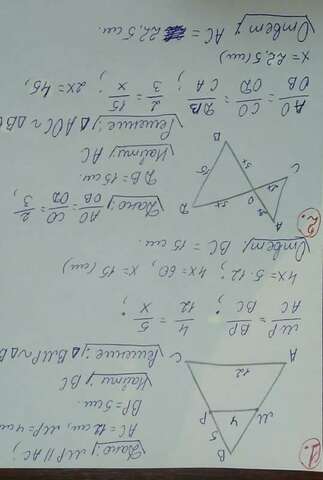 1.
B
5
M 4 P
12
A C
Дано: MP || AC;
AC = 12 см, MP = 4 см
BP = 5 см.
Найти: BC
Решение: ΔBMP ~ ΔB
MP/AC = BP/BC; 4/12 = 5/x;
4x = 5·12; 4x = 60, x = 15 (см)
Ответ: BC = 15 см.
2.
A
C
O
3x 3x
15
D
B
Дано: AO/OB = CO/OD = 2/3,
DB = 15 см.
Найти: AC
Решение: ΔAOC ~ ΔBO
AO/OB = CO/OD = DB/CA; 2/3 = 15/x; 2x = 45,
x = 22,5 (см)
Ответ: AC = 22,5 см.